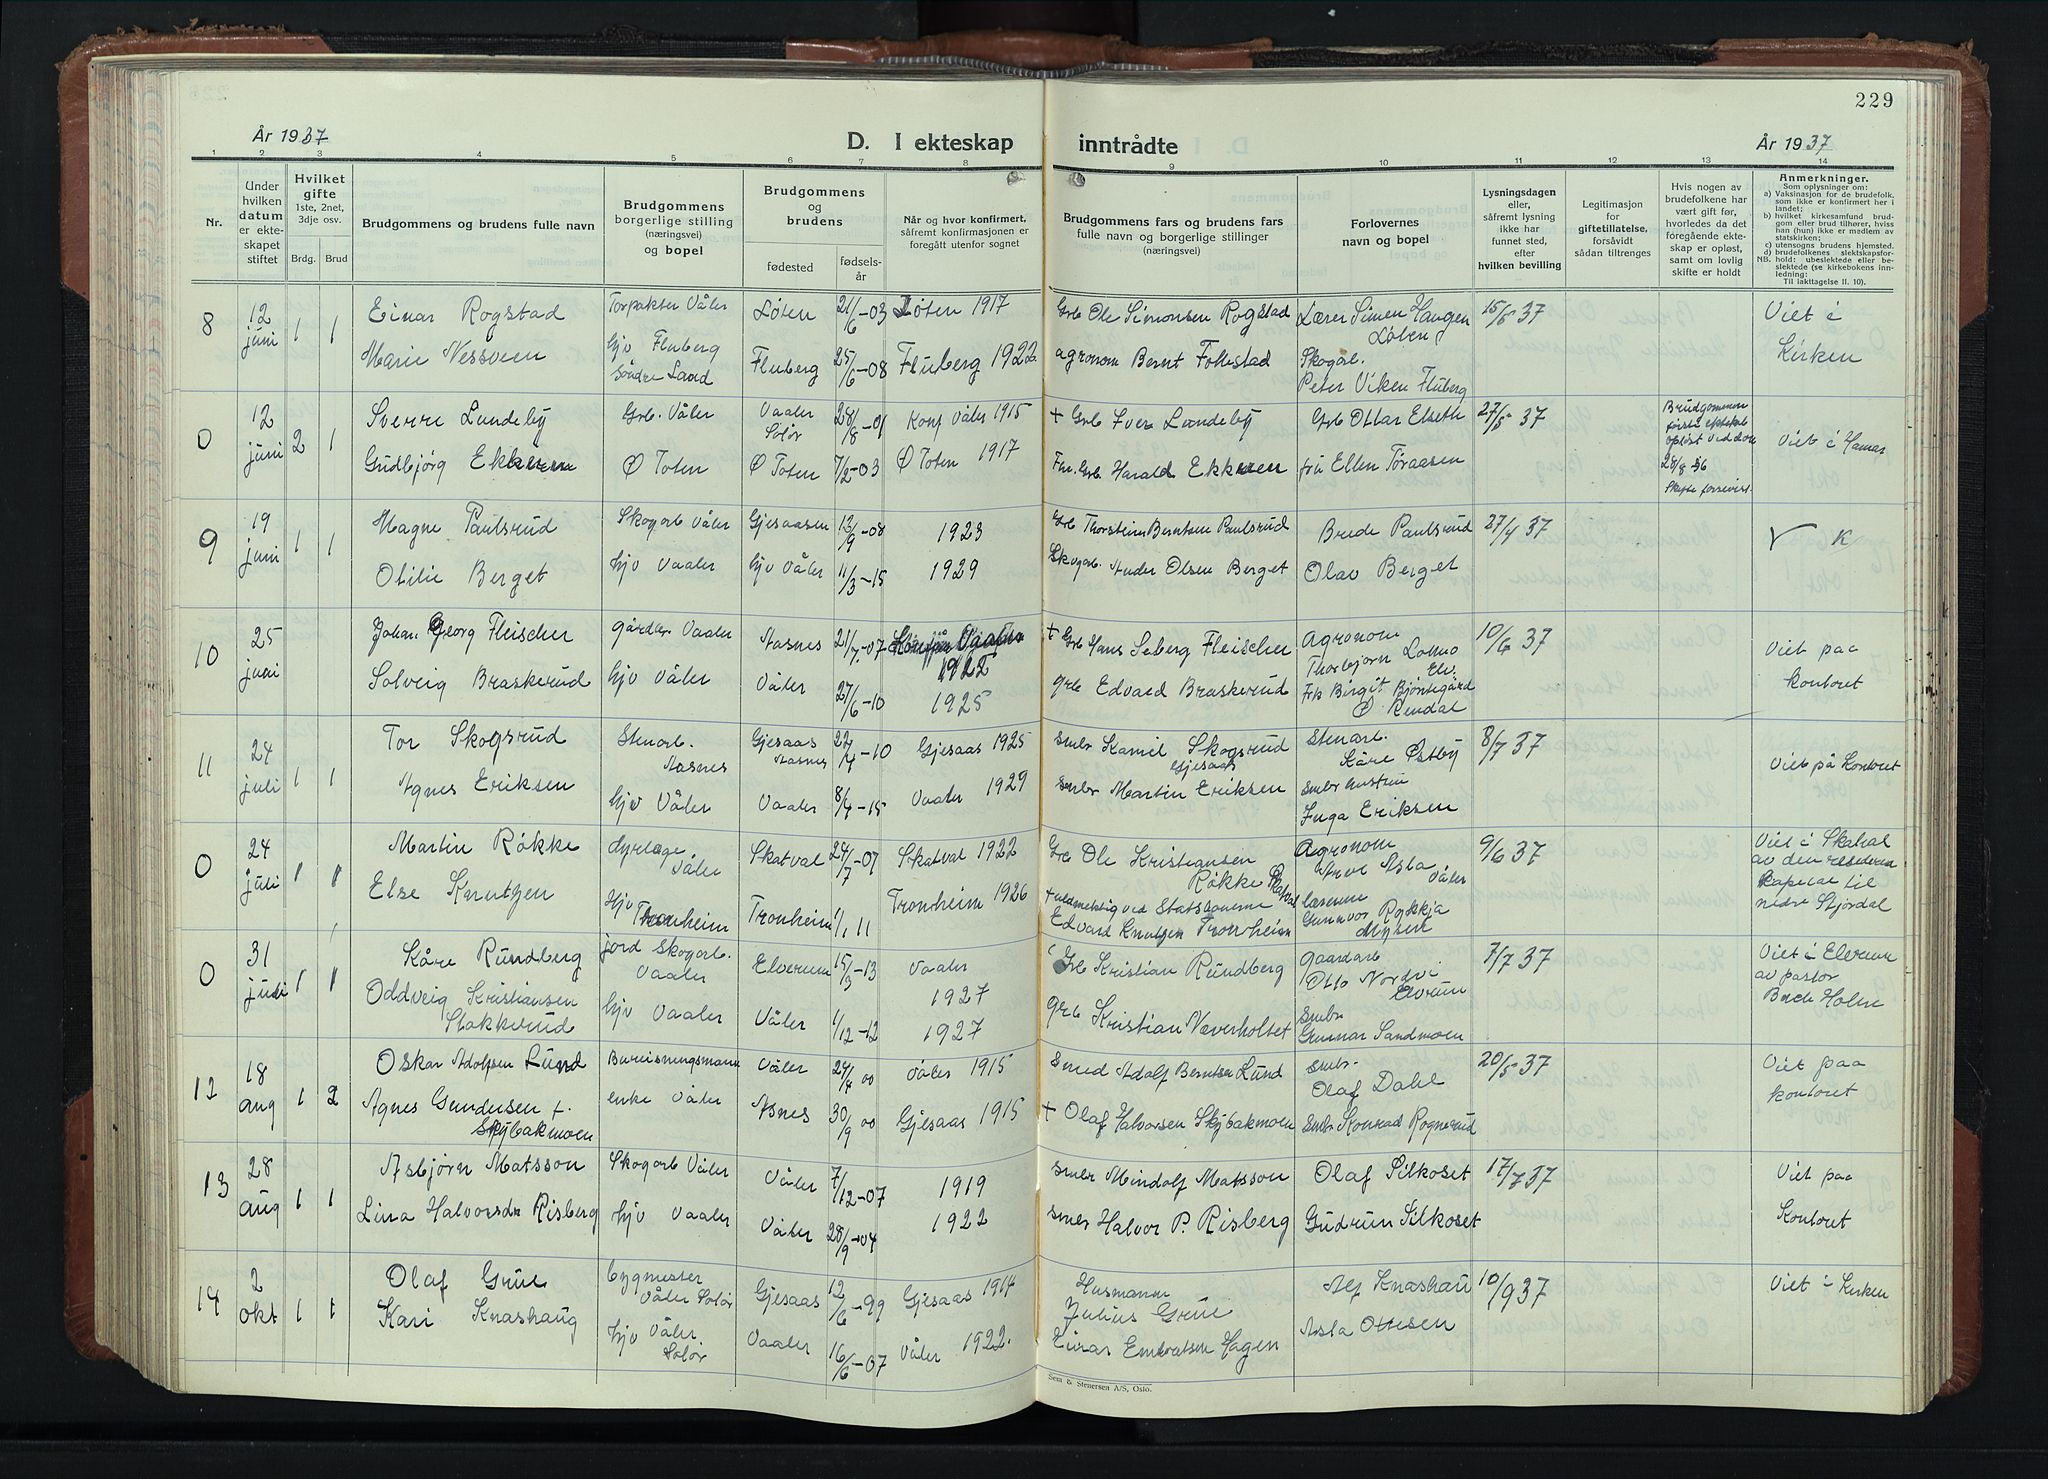 229
År 1937
D. I ekteskap
inntrådte
År 1937
1 2 3 4 5 6 7 8 9 10 11 12 13 14
Nr.
Under
hvilken
datum
er ekte-
skapet
stiftet
Hvilket
gifte
1ste, 2net,
3dje osv.
Brdg. Brud
Brudgommens og brudens fulle navn
Brudgommens
borgerlige stilling
(næringsvei)
og bopel
Brudgommens
og
brudens
fødested
fødsels-
år
Når og hvor konfirmert,
såfremt konfirmasjonen er
foregått utenfor sognet
Brudgommens fars og brudens fars
fulle navn og borgerlige stillinger
(næringsvei)
Forlovernes
navn og bopel
Lysningsdagen
eller,
såfremt lysning
ikke har
funnet sted,
efter
hvilken bevilling
Legitimasjon
for
giftetillatelse,
forsåvidt
sådan tiltrenges
Hvis nogen av
brudefolkene har
vært gift før,
hvorledes da det
foregående ekte-
skap er opløst,
samt om lovlig
skifte er holdt
Anmerkninger.
Som oplysninger om:
a) Vaksinasjon for de brudefolk.
som ikke er konfirmert her i
landet;
b) hvilket kirkesamfund brud-
gom eller brud tilhører, hviss
han (hun) ikke er medlem av
statskirken;
c) utensogns brudens hjemsted.
d) brudefolkenes slektskapsfor-
NB. hold: ubeslektede eller be-
slektede (se kirkebokens inn-
ledning:
Til iakttagelse II. 10).
8 12 juni 1 1
Einar Rogstad
Torpakter Våler
Løten 21/6-03 Løten 1917
Grb Ole Simonsen Rogstad
Lærer Simen Haugen
Løten
15/5 37
Viet i
Kirken
Marie Nessveen
hjv Fluberg
Søndre Land
Fluberg 25/6-08 Fluberg 1922
agronom Bernt Follestad
Skogarb.
Peter Viken Fluberg
0 12 juni 2 1
Sverre Lundeby
Grb. Våler
Vaaler
Solør
28/8-01 Konf Våler 1915
+ Grb Iver Lundeby
Grb Ottar Elseth
27/5 37
Brudgommens
første ekteskab
opløst ved død
28/8-36
Skifte forevist.
Viet i Hamar
Gudbjörg Ekkeren
Ø Toten
Ø Toten 7/2-03 Ø Toten 1917
Grb. Harald Ekkeren
fru Ellen Toraasen
9 19 juni 1 1
Magne Paulsrud
Skogarb Våler
Gjesaasen 13/9-08 1923
Grb Thorsteim Berntsen Paulsrud
Brede Paulsrud
27/4 37
V K
Otilie Berget
hjv Vaaler
hjv Våler 11/3-15 1929
Skogarb. Anders Olsen Berget
Olav Berget
10 25 juni
Johan Georg Fleischer
gårdbr Vaaler
Aasnes 21/7-07
1922
+ Grb Hans Seberg Fleischer
Agronom
Thorbjørn Lomo
Elv.
10/6 37
Viet paa
kontoret
Solveig Braskerud
hjv Våler
Våler 27/6-10 1925
grb Edvard Braskerud
Frk Birgit Bjøntegård
Ø Rendal
11 24 juli 1 1
Tor Skogsrud
Stenarb.
Aasnes
Gjesaas
Aasnes
22/4-10 Gjesaas 1925
smbr Kamil Skogsrud
Gjesaas
Stenarb.
Kåre Østby
8/7 37
Viet på Kontoret
Agnes Eriksen
hjv Våler
Vaaler 8/4-15 Vaaler 1929
smbr Martin Eriksen
Smbr hustru
Inga Eriksen
0 24 juli 1 1
Martin Røkke
dyrlæge
Våler
Skatval 24/7-07 Skatval 1922
Grb Ole Kristiansen
Røkke Skatval
Agronom
Arve Asla
Våler
9/6 37
Viet i Skatval
av den residerende
kapelan til
nedre Stjørdal
Else Knutzen
Hjv
Tronheim
Tronheim 1/1 11 Tronheim 1926
+ fuldmektig ved Statsbanerne
Edvard Knutzen Tronheim
lærerinne
Gunnvor Røkkja
Mysen
0 31 juli 1 1
Kåre Rundberg
jord Skogarb.
Vaaler
Elverum 15/3-13 Vaaler
1927
Grb Kristian Rundberg
gaardarb
Otto Nordvi
Elvrum
7/7 37
Viet i Elverum
av pastor
Brede Holm
Oddveig Kristiansen
Stokkerud
hjv Vaaler
Våler 1/12-12 1927
grb Kristian Næverholtet
Smbr
Gunnar Sandmoen
12 18 aug 1 2
Oskar Adolfsen Lund
Bureisningsmann
Våler 24/4 00 Våler 1915
Smed Adolf Berntsen Lund
Smbr.
Olaf Dahl
20/5 37
Viet paa
kontoret
Agnes Gundersen f.
Skybakmoen
enke Våler
Åsnes 30/9 00 Gjesaas 1915
+ Olaf Halvorsen Skybakmoen
Smbr Konrad Rognerud
13 28 aug 1 1
Asbjørn Matsson
Skogarb Våler
Våler 7/12-07 1919
smbr Mindolf Matsson
Olaf Silkoset
17/7 37
Viet paa
Kontoret
Lina Halvorsdr Risberg
hjv Vaaler
Våler 28/9-04 1922
smbr Halvor P. Risberg
Gudrun Silkoset
14 2 okt 1 1
Olaf Grue
bygmester
Våler Solør
Gjesaas 12/6-99 Gjesaas 1914
Husmann
Julius Grue
Alf Knashau
10/9 37
Viet i Kirken
Kari Knashaug
hjv Våler.
Solør
Vaaler 16/6-07 Våler 1922.
Einar Embretsen Hagen
Asta Ottesen
Sem & Stenersen A/S, Oslo.